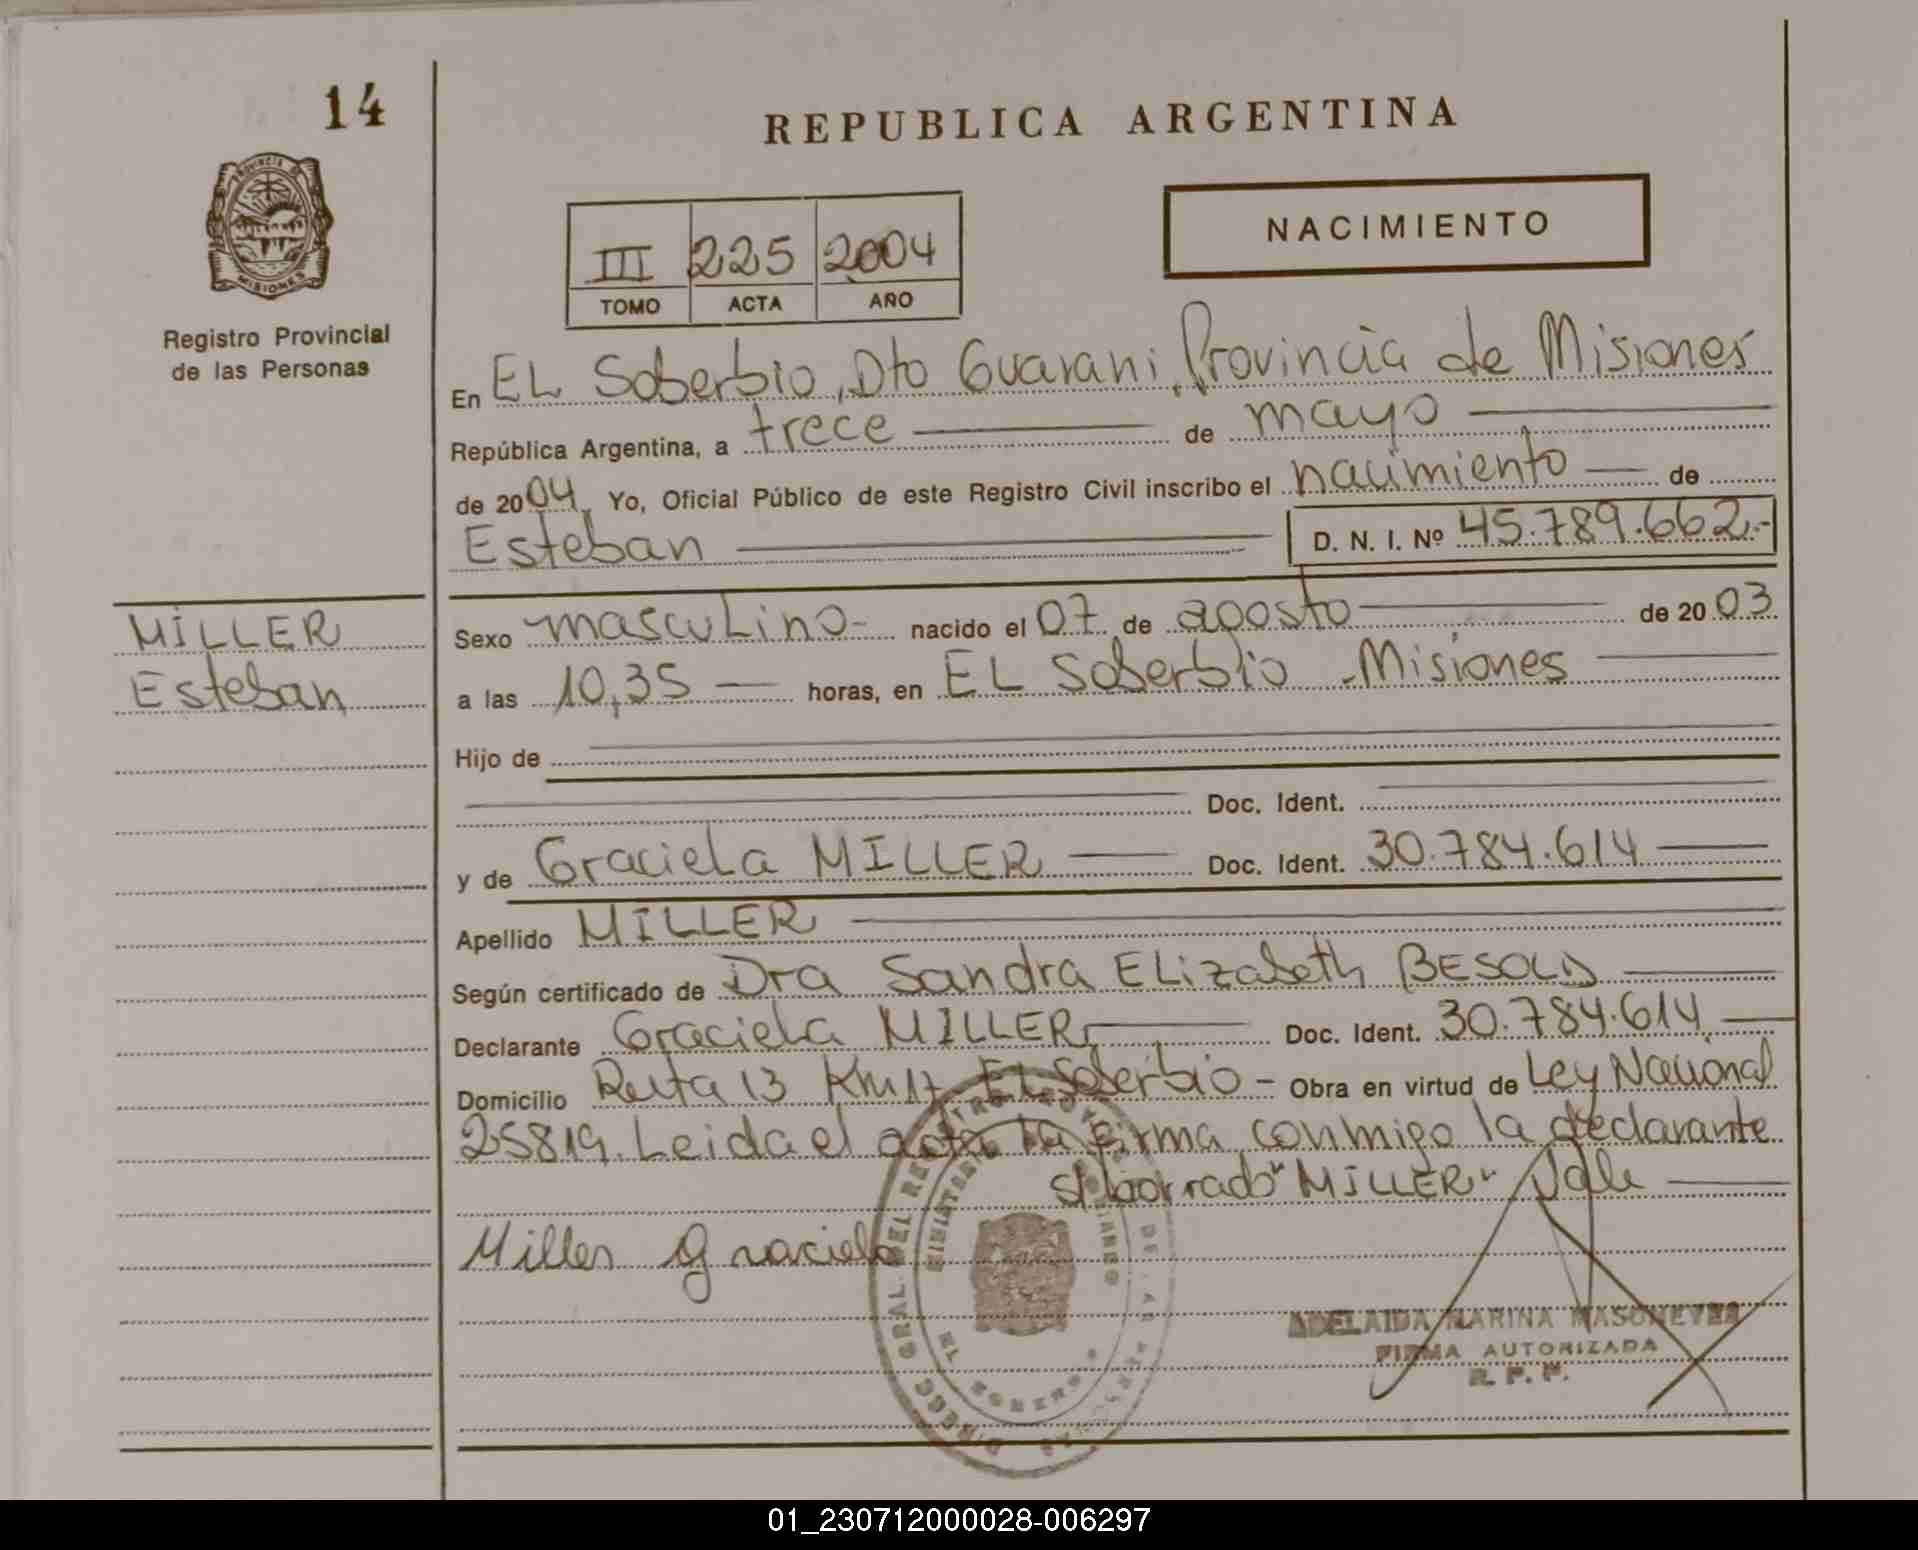 14
REPUBLICA ARGENTINA
PROVINCIA DE
MISIONES
Registro Provincial
de las Personas
III 225 2004
TOMO ACTA AÑO
NACIMIENTO
En EL Soberbio, Dto Guarani, Provincia de Misiones
República Argentina, a trece de mayo
de 2004 Yo, Oficial Público de este Registro Civil inscribo el nacimiento de
Esteban D. N. I. Nº 45.789.662.-
MILLER
Esteban
Sexo masculino- nacido el 07 de agosto de 2003
a las 10,35 horas, en EL Soberbio - Misiones
Hijo de
Doc. Ident.
y de Graciela MILLER Doc. Ident. 30.784.614
Apellido MILLER
Según certificado de Dra Sandra ELizabeth BESOLD
Declarante Graciela MILLER Doc. Ident. 30.784.614
Domicilio Ruta 13 Km 17 EL Soberbio - Obra en virtud de Ley Nacional
25819. Leida el acta la firma conmigo la declarante
S/ borrado "MILLER" Vale
Miller Graciela
FIRMA AUTORIZADA
R. P. P.
01_230712000028-006297